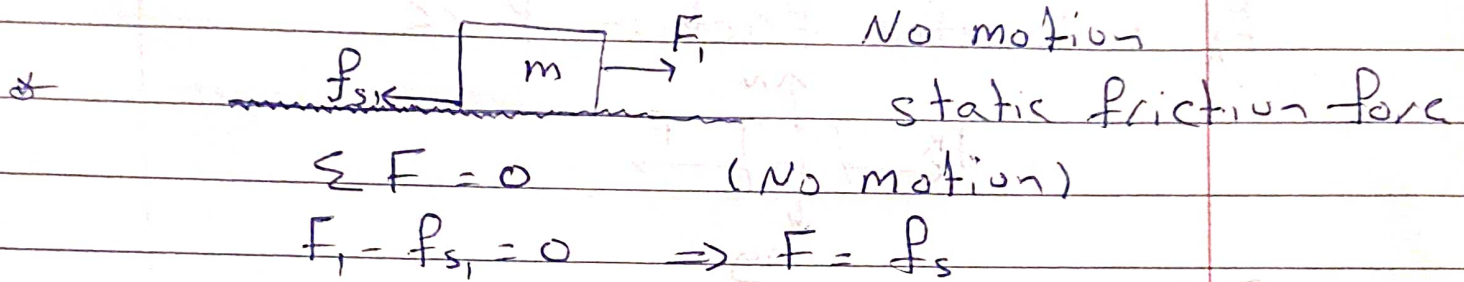 F₁ No motion
* fs₁ m static friction force
Σ F = 0 (No motion)
F₁ - fs₁ = 0 ⇒ F = fs